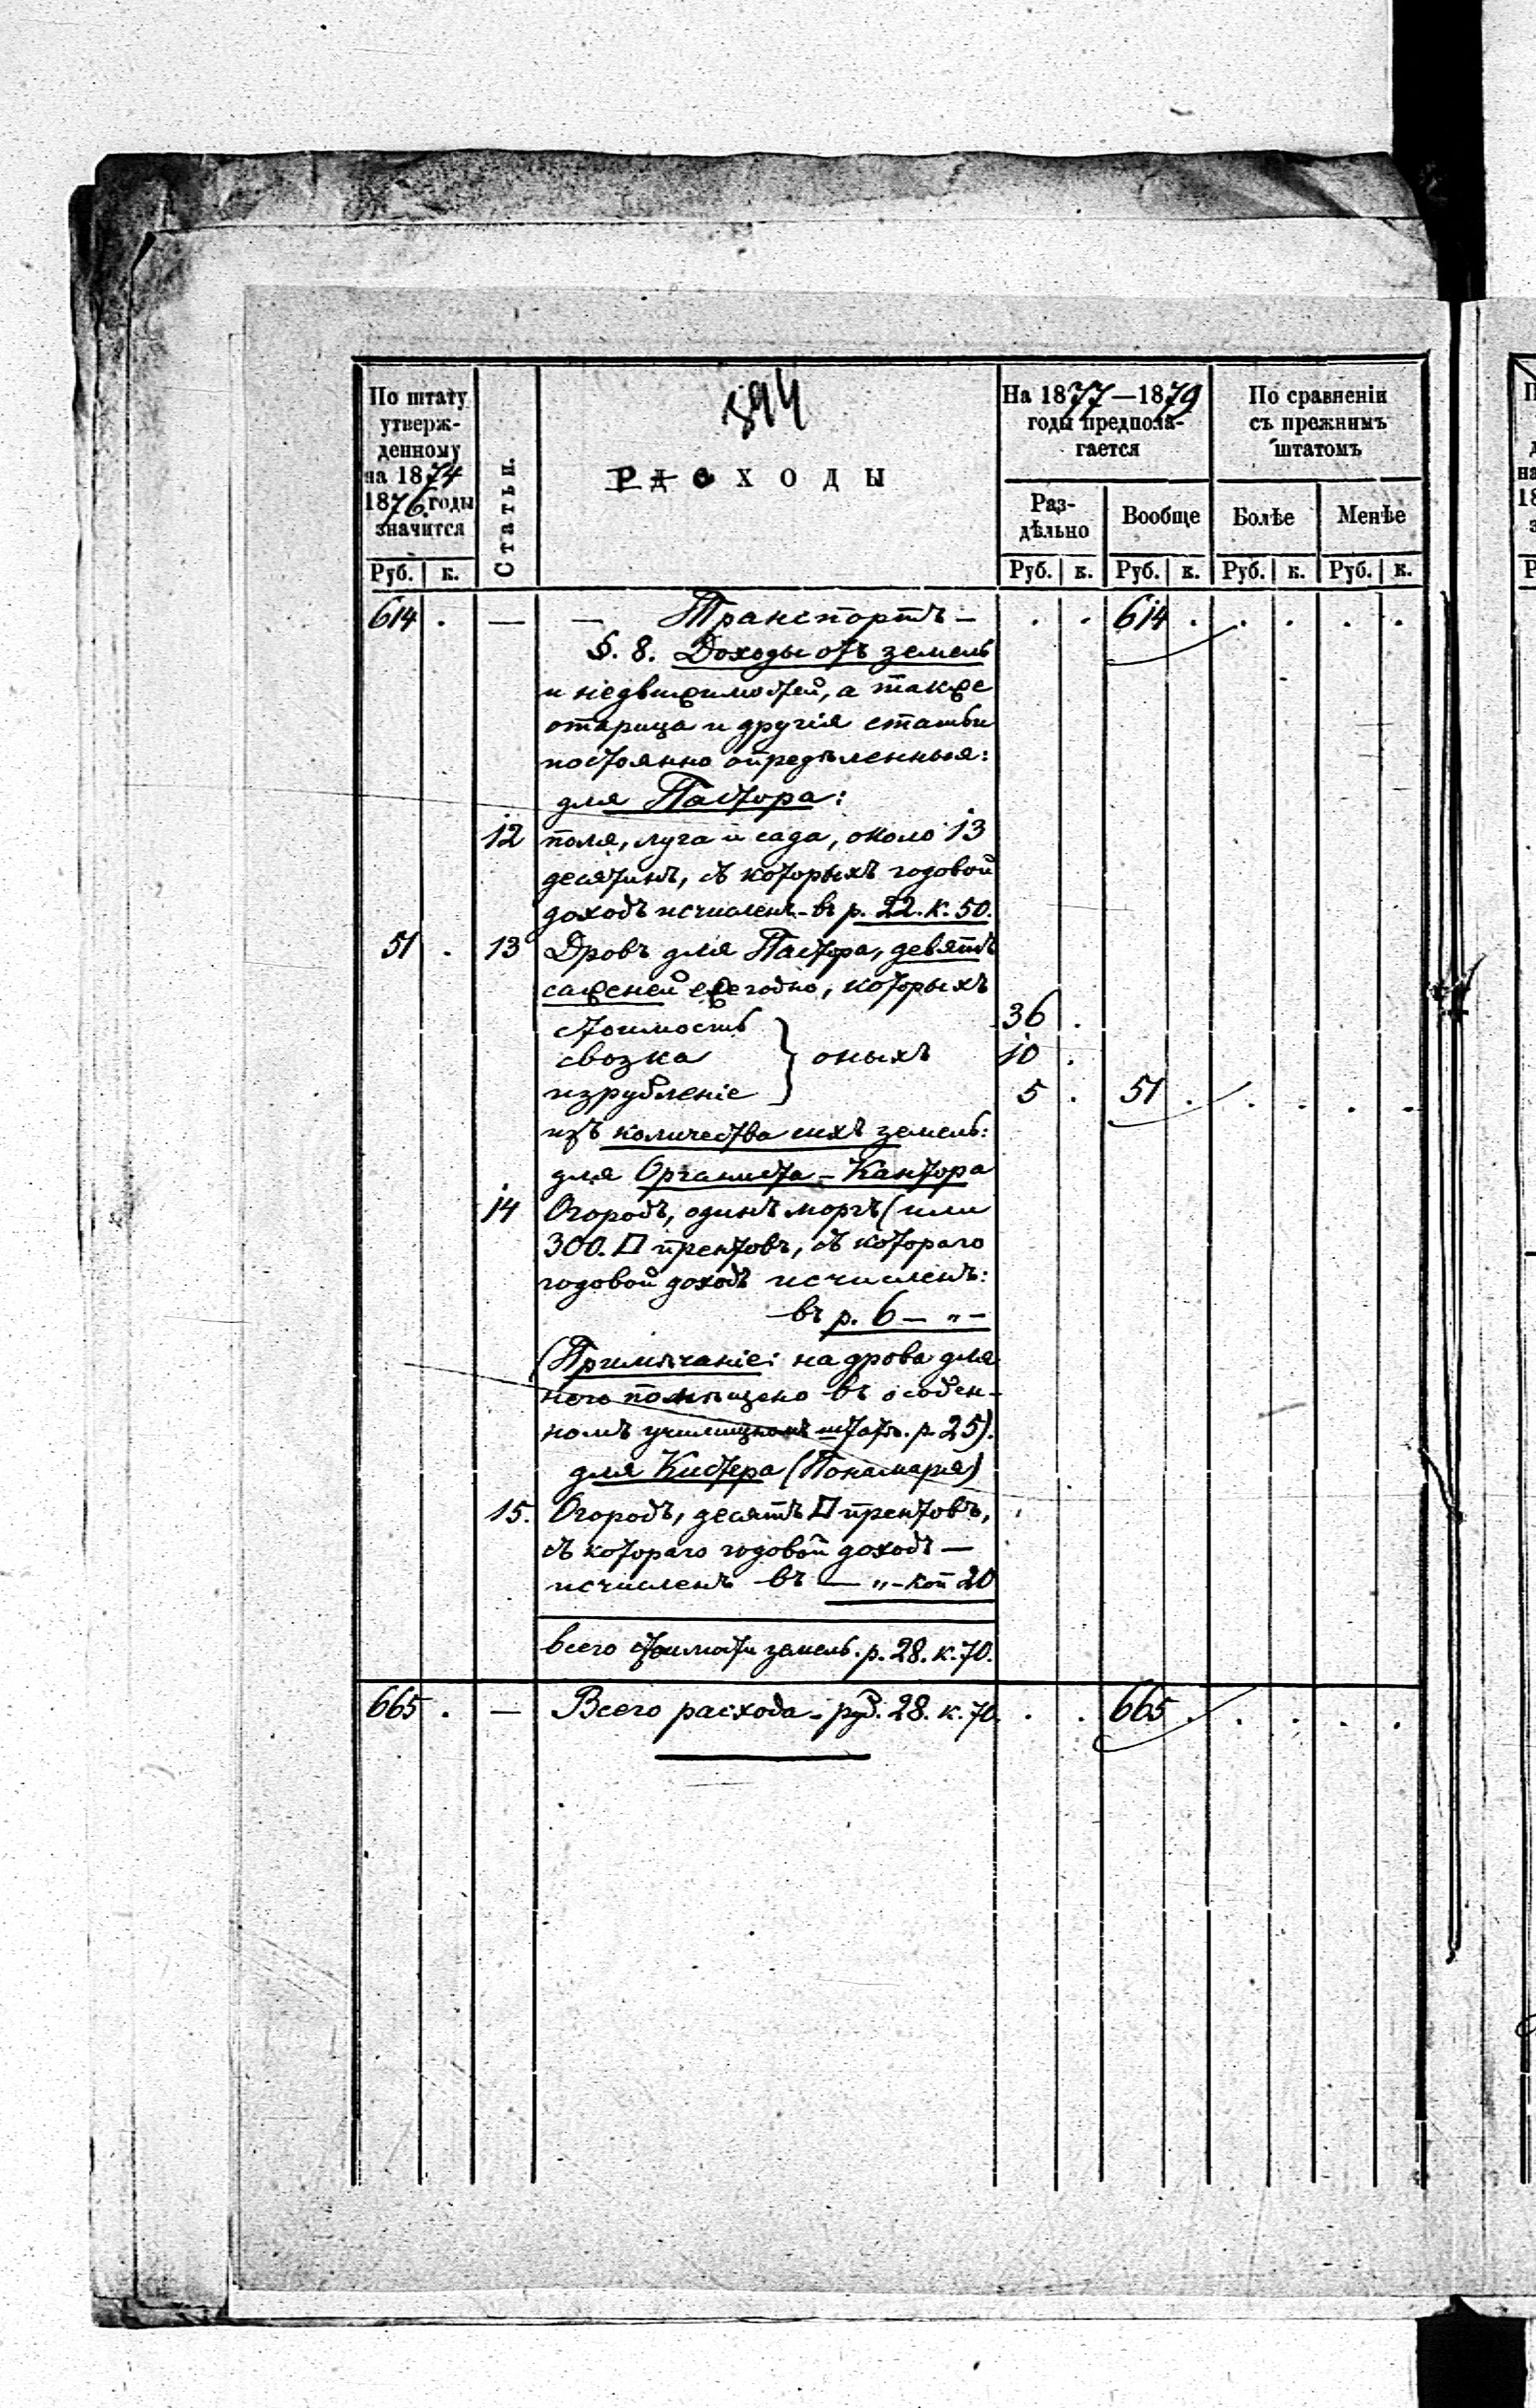 По штату
утверж-
денному
на 1874
1876 годы
значится
Руб. к.
Статьи.
594
РАСХОДЫ
На 1877—1879
годы предпола-
гается
Раз-
дѣльно
Вообще
Руб. к. Руб. к.
По сравненіи
съ прежнимъ
штатомъ
Болѣе Менѣе
Руб. к. Руб. к.
614 . — — Транспортъ — . . 614 . . . . .
§. 8. Доходы отъ земель
и недвижимостей, а также
и другія статьи
постоянно опредѣленныя:
для Пастора:
12 поля, луга и сада, около 13
десятинъ, съ которыхъ годовой
доходъ исчисленъ - въ р. 22. к. 50.
51 . 13 Дровъ для Пастора, девять
саженей ежегодно, которыхъ
стоимость 36 .
свозка } оныхъ 10 .
изрубленіе 5 . 51 . . . . .
изъ количества сихъ земель:
для Органиста - Кантора
14 Огородъ, одинъ моргъ (или
300. □ прентовъ, съ котораго
годовой доходъ исчисленъ:
въ р. 6 — „ —
(Примѣчаніе: на дрова для
него помѣщено въ особен-
номъ училищномъ штатѣ. р. 25).
для Кистера (Понамаря)
15. Огородъ, десять □ прентовъ,
съ котораго годовой доходъ —
исчисленъ въ — „ - коп 20
всего стоимости земель. р. 28. к. 70.
665 . — Всего расхода - руб. 28. к. 70. . . 665 . . . . .